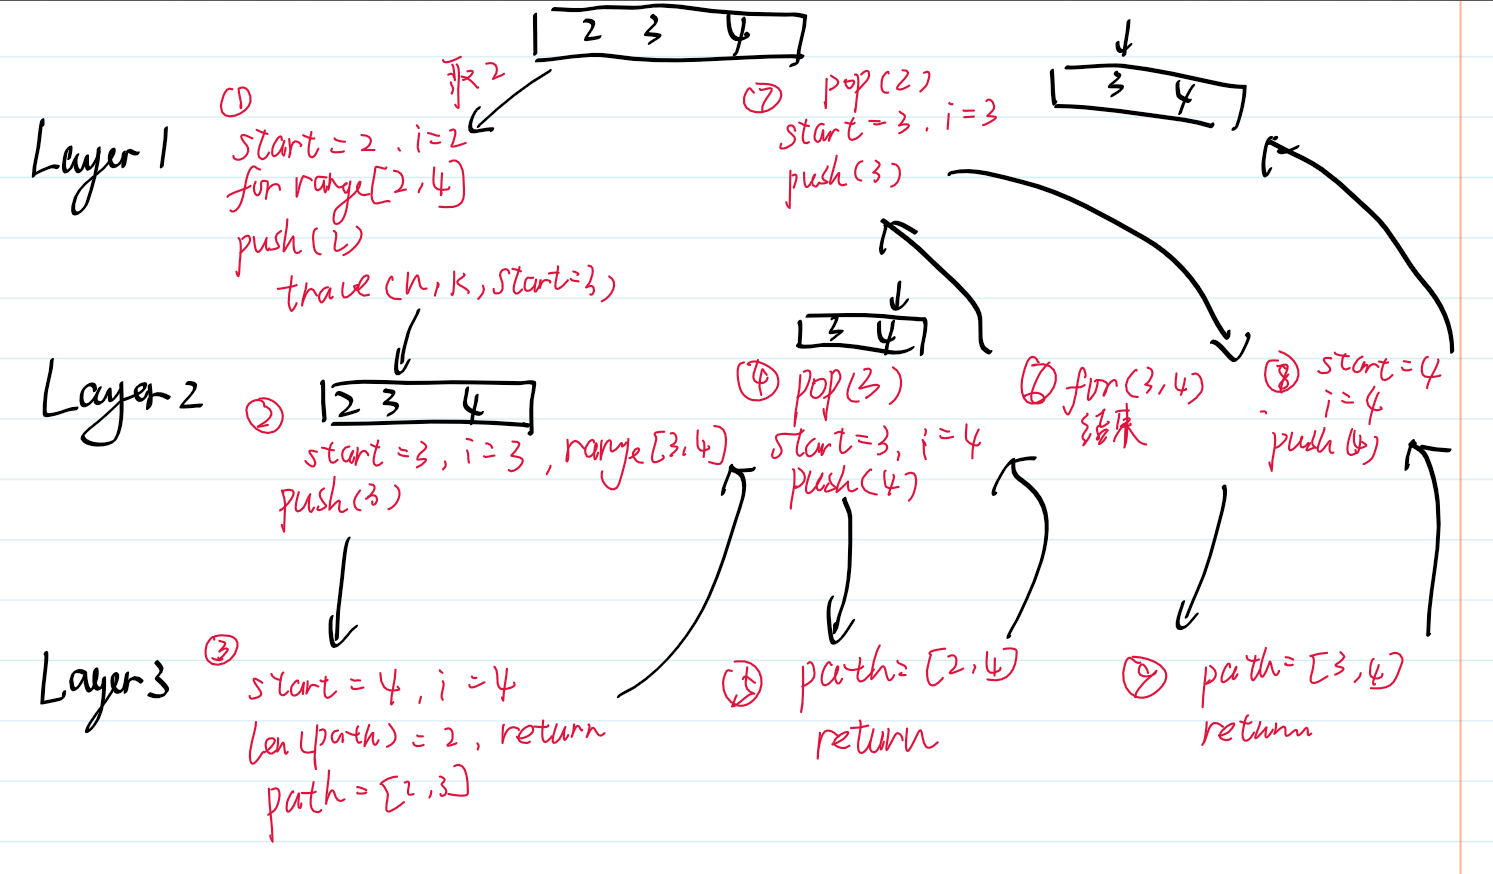 2 3 4
取2
Layer 1
①
start = 2 . i=2
for range[2,4]
push(2)
trave(n, k, start=3)
⑦ pop(2)
start = 3 . i=3
push(3)
3 4
Layer 2
②
2 3 4
start =3, i=3, range[3,4]
push(3)
3 4
④ pop(3)
start=3, i=4
push(4)
⑥ for(3,4)
结束
⑧ start=4
i=4
push(4)
Layer 3
③
start = 4, i =4
len(path) = 2, return
path=[2,3]
⑤ path=[2,4]
return
⑨ path=[3,4]
return